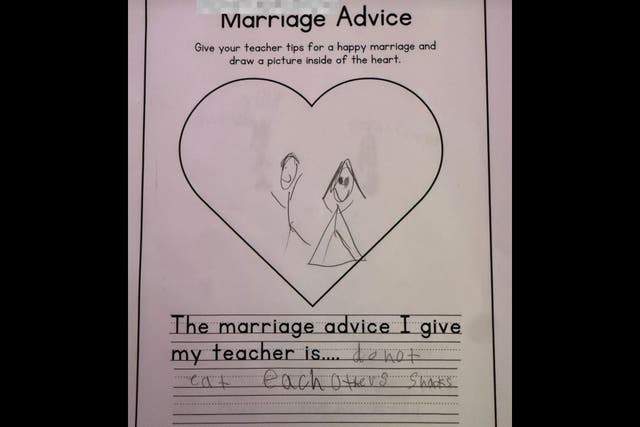 Marriage Advice
Give your teacher tips for a happy marriage and
draw a picture inside of the heart.
The marriage advice I give
my teacher is.... do not
eat each others snacks